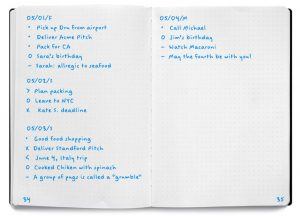 05/01/F
• Pick up Dru from airport
• Deliver Acme Pitch
• Pack for CA
O Sara's birthday
– Sarah: allergic to seafood
05/02/S
> Plan packing
O Leave to NYC
x Kate S. deadline
05/03/S
• Good food shopping
x Deliver Standford Pitch
< June 4, Italy trip
O Cooked Chiken with spinach
– A group of pugs is called a "grumble"
34
05/04/M
• Call Michael
O Jim's birthday
– Watch Macaroni
– May the fourth be with you!
35